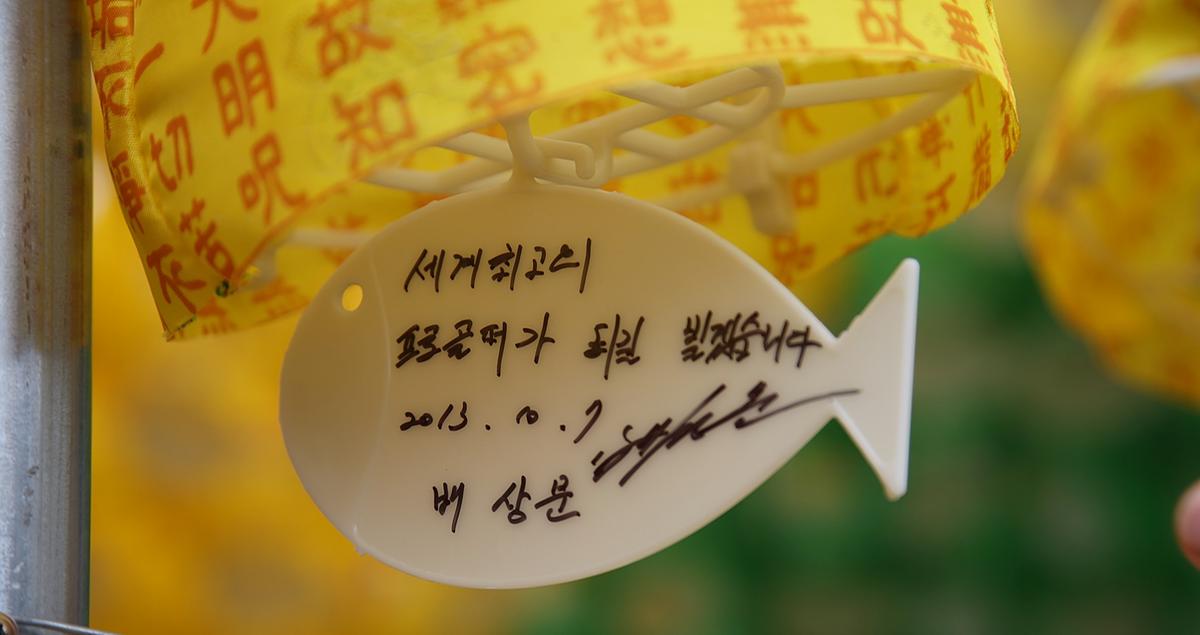 大 故 究 想 無 故 無
明 知
一切 呪
苦
세계 최고의
프로골퍼가 되길 빌겠습니다
2013. 10. 7
배 상문